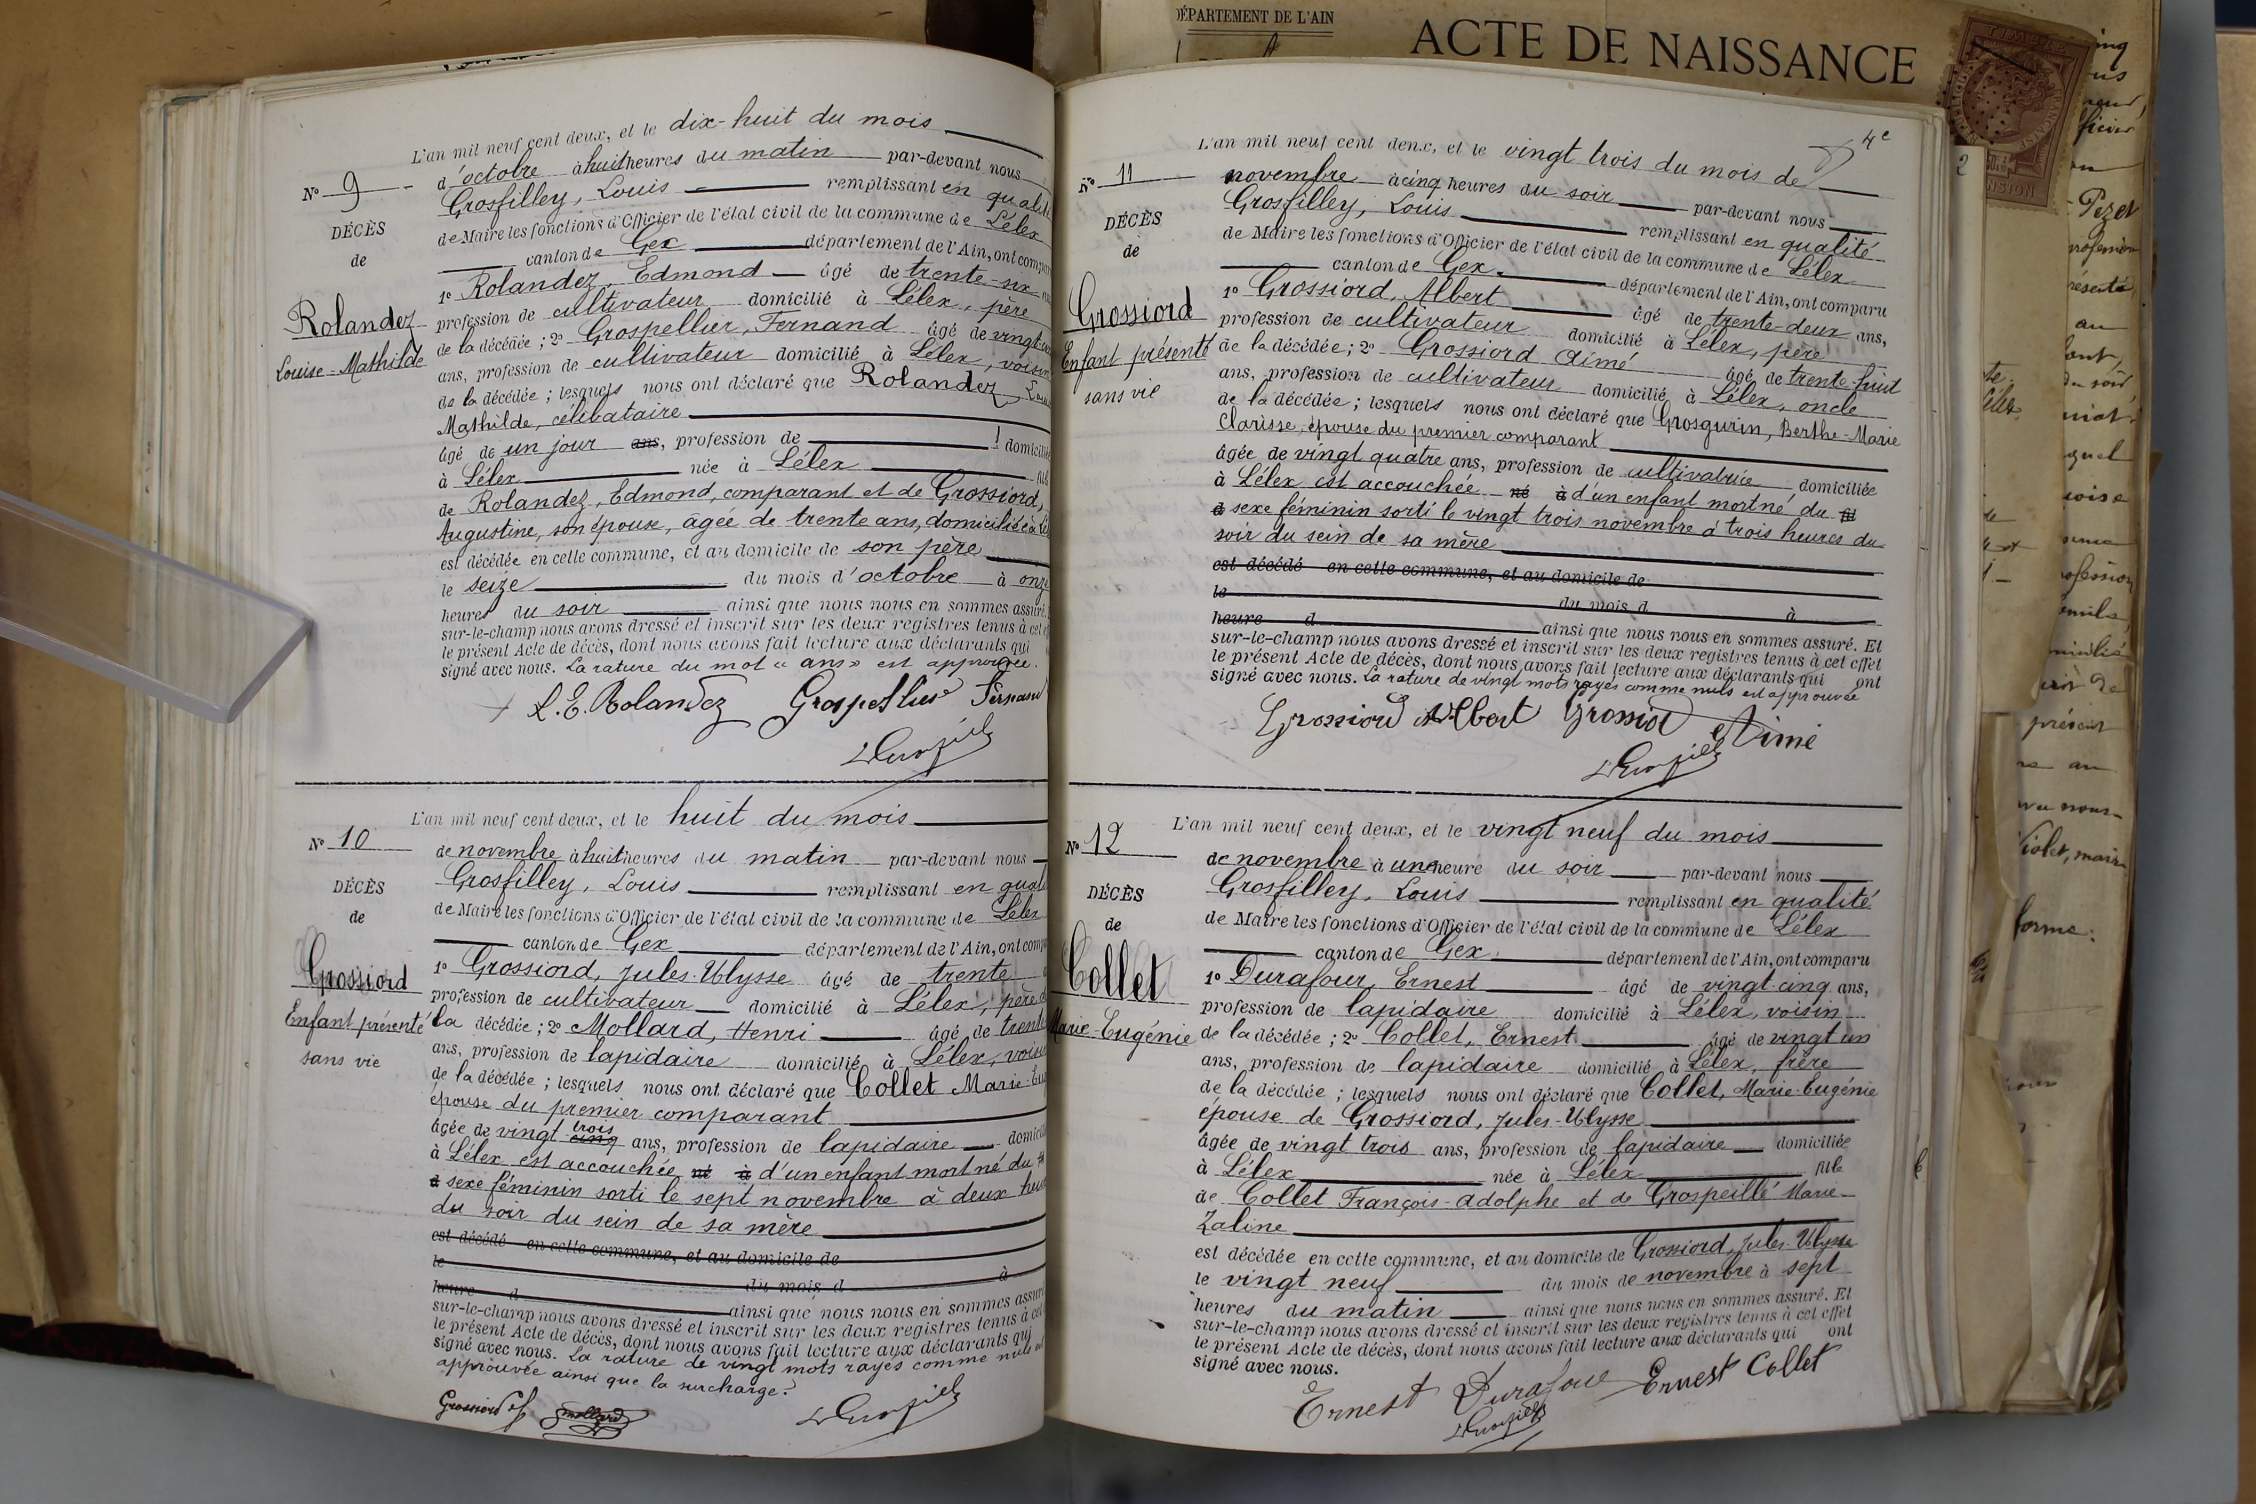 L'an mil neuf cent deux, et le dix-huit du mois
N° 9
d'octobre à huit heures du matin par-devant nous
Grosfilley, Louis remplissant en qualité
DÉCÈS
de Maire les fonctions d'Officier de l'état civil de la commune de Lélex
de
canton de Gex département de l'Ain, ont comparu
1° Rolandez, Edmond âgé de trente-six
Rolandez
profession de cultivateur domicilié à Lélex, père
Louise-Mathilde
de la décédée; 2° Grospellier, Fernand âgé de vingt
ans, profession de cultivateur domicilié à Lélex, voisin
de la décédée; lesquels nous ont déclaré que Rolandez, Louise
Mathilde, célibataire
âgé de un jour ans, profession de domicilié
à Lélex née à Lélex fille
de Rolandez, Edmond, comparant et de Grossiord,
Augustine, son épouse, âgée de trente ans, domiciliée à Lélex
est décédée en cette commune, et au domicile de son père
le seize du mois d'octobre à onze
heures du soir ainsi que nous nous en sommes assuré.
sur-le-champ nous avons dressé et inscrit sur les deux registres tenus à cet
le présent Acte de décès, dont nous avons fait lecture aux déclarants qui
signé avec nous. La rature du mot « ans » est approuvée.
L. E. Rolandez Grospellier Fernand
L Grosfilley
L'an mil neuf cent deux, et le huit du mois
N° 10
de novembre à huit heures du matin par-devant nous
Grosfilley, Louis remplissant en qualité
DÉCÈS
de Maire les fonctions d'Officier de l'état civil de la commune de Lélex
de
canton de Gex département de l'Ain, ont comparu
Grossiord
1° Grossiord, Jules-Ulysse âgé de trente
profession de cultivateur domicilié à Lélex, père de
Enfant présenté
la décédée; 2° Mollard, Henri âgé de trente
sans vie
ans, profession de lapidaire domicilié à Lélex, voisin
de la décédée; lesquels nous ont déclaré que Collet Marie-Eug
épouse du premier comparant
âgée de vingt cinq trois ans, profession de lapidaire domiciliée
à Lélex est accouchée né à d'un enfant mort né du
à sexe féminin sorti le sept novembre à deux heures
du soir du sein de sa mère
est décédé en cette commune, et au domicile de
le du mois d à
heure d ainsi que nous nous en sommes assuré
sur-le-champ nous avons dressé et inscrit sur les deux registres tenus à cet
le présent Acte de décès, dont nous avons fait lecture aux déclarants qui
signé avec nous. La rature de vingt mots rayés comme nuls est
approuvée ainsi que la surcharge.
Grossiord Mollard L Grosfilley
DÉPARTEMENT DE L'AIN
ACTE DE NAISSANCE
4e
L'an mil neuf cent deux, et le vingt trois du mois de
N° 11
novembre à cinq heures du soir par-devant nous
Grosfilley, Louis remplissant en qualité
DÉCÈS
de Maire les fonctions d'Officier de l'état civil de la commune de Lélex
de
canton de Gex département de l'Ain, ont comparu
Grossiord
1° Grossiord, Albert âgé de trente-deux ans,
profession de cultivateur domicilié à Lélex, père
Enfant présenté
de la décédée; 2° Grossiord Aimé âgé de trente-huit
sans vie
ans, profession de cultivateur domicilié à Lélex, oncle
de la décédée; lesquels nous ont déclaré que Grosgurin, Berthe-Marie
Clarisse, épouse du premier comparant
âgée de vingt quatre ans, profession de cultivatrice domiciliée
à Lélex est accouchée né à d'un enfant mort né du
à sexe féminin sorti le vingt trois novembre à trois heures du
soir du sein de sa mère
est décédé en cette commune, et au domicile de
le du mois d à
heure d ainsi que nous nous en sommes assuré. Et
sur-le-champ nous avons dressé et inscrit sur les deux registres tenus à cet effet
le présent Acte de décès, dont nous avons fait lecture aux déclarants qui ont
signé avec nous. La rature de vingt mots rayés comme nuls est approuvée
Grossiord Albert Grossiord Aimé
L Grosfilley
L'an mil neuf cent deux, et le vingt neuf du mois
N° 12
de novembre à une heure du soir par-devant nous
Grosfilley, Louis remplissant en qualité
DÉCÈS
de Maire les fonctions d'Officier de l'état civil de la commune de Lélex
de
canton de Gex département de l'Ain, ont comparu
Collet
1° Durafour, Ernest âgé de vingt-cinq ans,
profession de lapidaire domicilié à Lélex, voisin
Marie-Eugénie
de la décédée; 2° Collet, Ernest âgé de vingt un
ans, profession de lapidaire domicilié à Lélex, frère
de la décédée; lesquels nous ont déclaré que Collet, Marie-Eugénie
épouse de Grossiord, Jules-Ulysse
âgée de vingt trois ans, profession de lapidaire domiciliée
à Lélex née à Lélex fille
de Collet François-Adolphe et de Grospeillé Marie-
Zaline
est décédée en cette commune, et au domicile de Grossiord, Jules-Ulysse
le vingt neuf du mois de novembre à sept
heures du matin ainsi que nous nous en sommes assuré. Et
sur-le-champ nous avons dressé et inscrit sur les deux registres tenus à cet effet
le présent Acte de décès, dont nous avons fait lecture aux déclarants qui ont
signé avec nous.
Ernest Durafour Ernest Collet
L Grosfilley